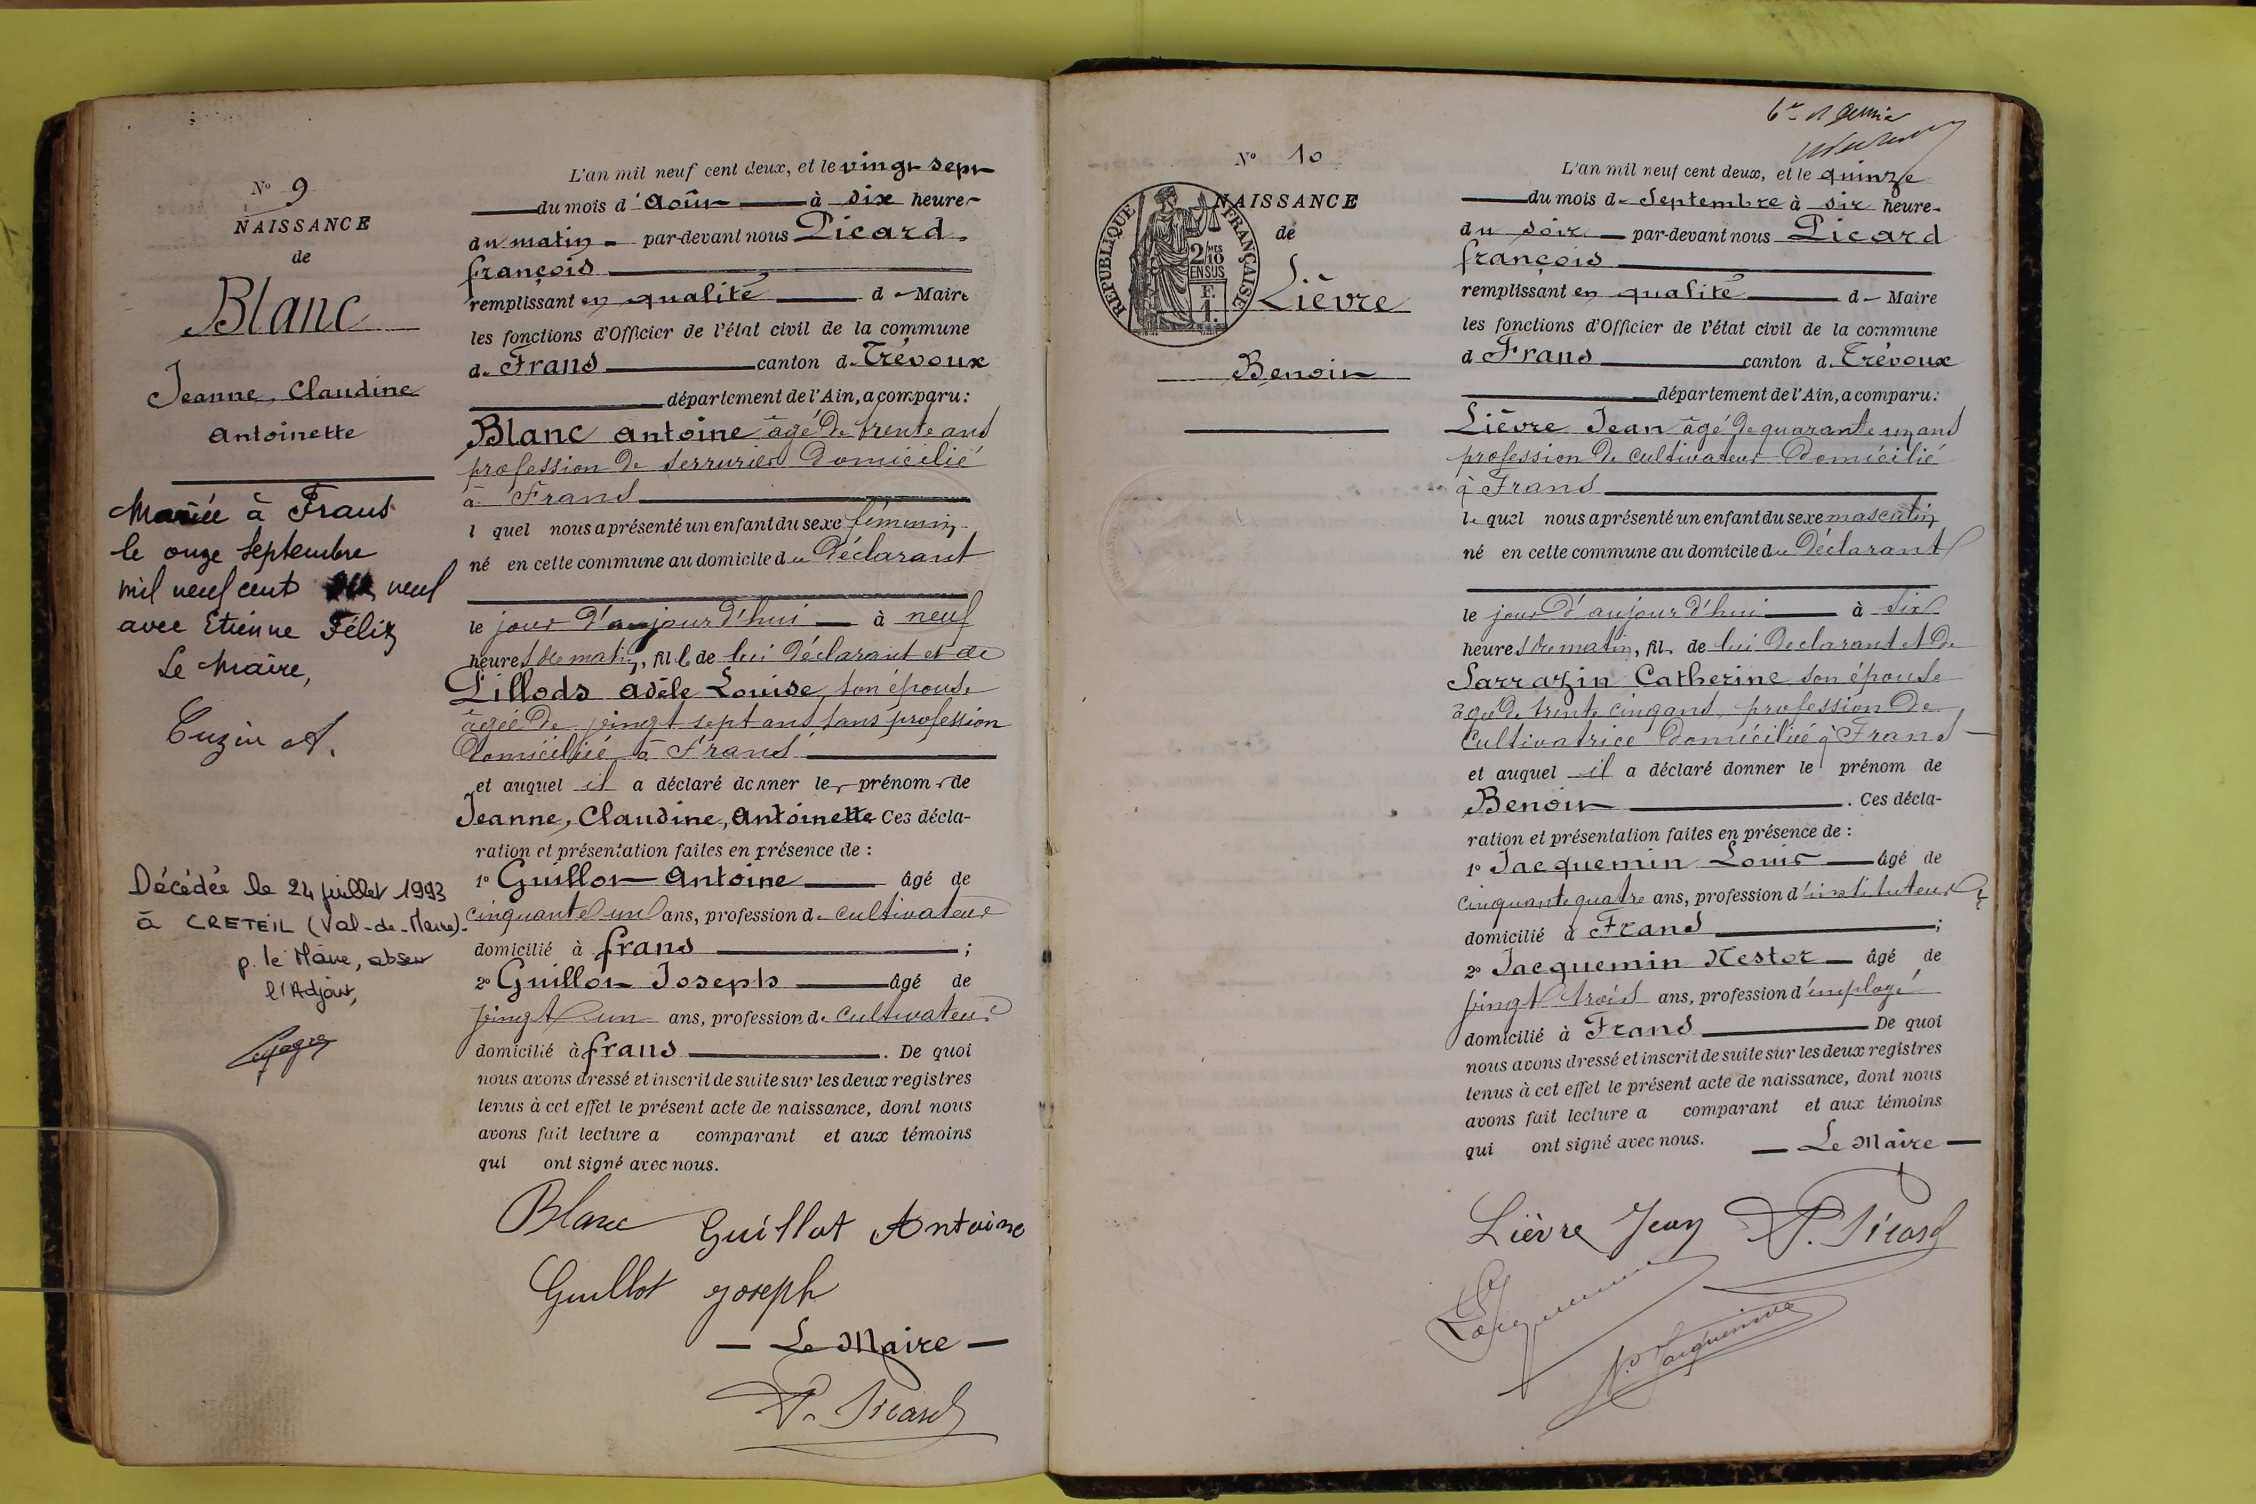 N° 9
NAISSANCE
de
Blanc
Jeanne, Claudine
Antoinette
Mariée à Frans
le onze Septembre
mil neuf cent neuf
avec Etienne Félix
Le Maire,
Cuzin A.
Décédée le 24 juillet 1993
à CRETEIL (Val-de-Marne).
p. le Maire, absent
l'Adjoint,
L'an mil neuf cent deux, et le vingt sept
du mois d'août à six heures
du matin par-devant nous Picard
françois
remplissant en qualité de Maire
les fonctions d'Officier de l'état civil de la commune
de Frans canton de Trévoux
département de l'Ain, a comparu:
Blanc Antoine âgé de trente ans
profession de serrurier domicilié
à Frans
l quel nous a présenté un enfant du sexe féminin
né en cette commune au domicile du Déclarant
le jour d'aujourd'hui à neuf
heures du matin, fille de lui Déclarant et de
Pillods Adèle Louise, son épouse
âgée de vingt sept ans sans profession
domiciliée à Frans
et auquel il a déclaré donner les prénoms de
Jeanne, Claudine, Antoinette Ces décla-
ration et présentation faites en présence de :
1° Guillot Antoine âgé de
cinquante un ans, profession de cultivateur
domicilié à frans ;
2° Guillot Joseph âgé de
vingt un ans, profession de cultivateur
domicilié à frans . De quoi
nous avons dressé et inscrit de suite sur les deux registres
tenus à cet effet le présent acte de naissance, dont nous
avons fait lecture a comparant et aux témoins
qui ont signé avec nous.
Blanc Guillot Antoine
Guillot joseph
Le Maire
P. Picard
N° 10
NAISSANCE
de
Lièvre
Benoit
RÉPUBLIQUE FRANÇAISE
2/10 MES
EN SUS
F.
1.
6e et dernier
L'an mil neuf cent deux, et le quinze
du mois de Septembre à six heures
du soir par-devant nous Picard
françois
remplissant en qualité de Maire
les fonctions d'Officier de l'état civil de la commune
d Frans canton de Trévoux
département de l'Ain, a comparu:
Lièvre Jean âgé de quarante ans
profession de cultivateur domicilié
à Frans
le quel nous a présenté un enfant du sexe masculin
né en cette commune au domicile du Déclarant
le jour d'aujourd'hui à six
heures du matin, fils de lui Déclarant et de
Sarrazin Catherine son épouse
âgée de trente cinq ans, profession de
Cultivatrice domiciliée à Frans
et auquel il a déclaré donner le prénom de
Benoit . Ces décla-
ration et présentation faites en présence de :
1° Jacquemin Louis âgé de
cinquante quatre ans, profession d'instituteur
domicilié à Frans ;
2° Jacquemin Nestor âgé de
vingt trois ans, profession d'employé
domicilié à Frans De quoi
nous avons dressé et inscrit de suite sur les deux registres
tenus à cet effet le présent acte de naissance, dont nous
avons fait lecture a comparant et aux témoins
qui ont signé avec nous. Le Maire
Lièvre Jean P. Picard
L. Jacquemin
N. Jacquemin